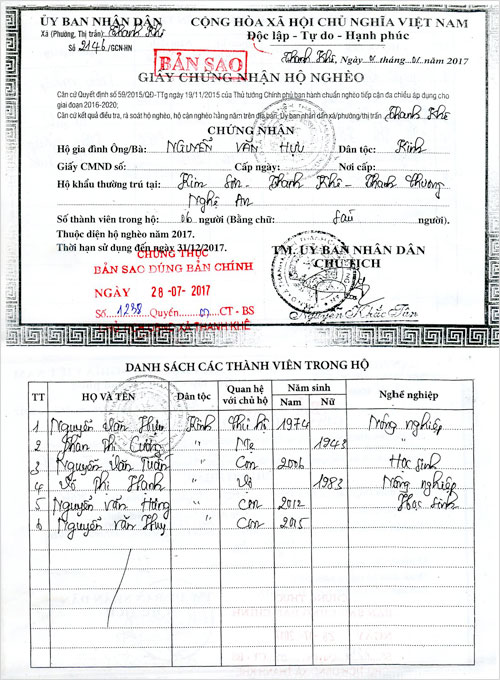 ỦY BAN NHÂN DÂN
Xã (Phường, Thị trấn): Thanh Khê
Số 2146/GCN-HN
CỘNG HÒA XÃ HỘI CHỦ NGHĨA VIỆT NAM
Độc lập - Tự do - Hạnh phúc
BẢN SAO
Thanh Khê, ngày 01 tháng 01 năm 2017
GIẤY CHỨNG NHẬN HỘ NGHÈO
Căn cứ Quyết định số 59/2015/QĐ-TTg ngày 19/11/2015 của Thủ tướng Chính phủ ban hành chuẩn nghèo tiếp cận đa chiều áp dụng cho
giai đoạn 2016-2020;
Căn cứ kết quả điều tra, rà soát hộ nghèo, hộ cận nghèo hằng năm trên địa bàn, Ủy ban nhân dân xã/phường/thị trấn Thanh Khê
CHỨNG NHẬN
Hộ gia đình Ông/Bà: NGUYỄN VĂN HỰU Dân tộc: Kinh
Giấy CMND số: Cấp ngày: Nơi cấp:
Hộ khẩu thường trú tại: Kim Sơn - Thanh Khê - Thanh Chương
Nghệ An
Số thành viên trong hộ: 06 người (Bằng chữ: Sáu người).
Thuộc diện hộ nghèo năm 2017.
Thời hạn sử dụng đến ngày 31/12/2017.
TM. ỦY BAN NHÂN DÂN
CHỦ TỊCH
CHỨNG THỰC
BẢN SAO ĐÚNG BẢN CHÍNH
NGÀY 28-07-2017
Số 1238 Quyển 01 CT - BS
XÃ THANH KHÊ
Nguyễn Khắc Tân
DANH SÁCH CÁC THÀNH VIÊN TRONG HỘ
TT HỌ VÀ TÊN Dân tộc Quan hệ với chủ hộ Năm sinh Nam Nữ Nghề nghiệp
1 Nguyễn Văn Hựu Kinh Chủ hộ 1974 Nông nghiệp
2 Phan Thị Cường " Mẹ 1943 "
3 Nguyễn Văn Tuấn " Con 2006 Học sinh
4 Võ Thị Hạnh " Vợ 1983 Nông nghiệp
5 Nguyễn văn Hồng " Con 2012 Học sinh
6 Nguyễn văn Huy " Con 2015